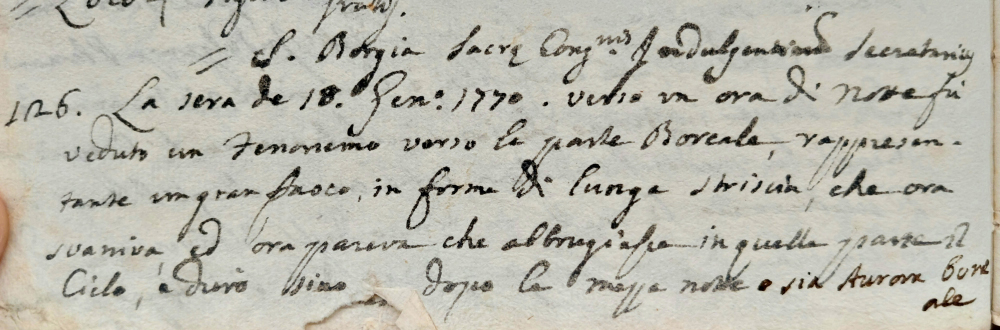 = S. Borgia Sacrę Congnis Indulgentiarum Secretarius
126. La sera de 18. Genº. 1770. verso un ora di Notte fù
veduto un Fenonemo verso la parte Boreale, rappresen-
tante un gran fuoco, in forma di lunga striscia, che ora
svaniva, ed ora pareva che abbrugiasse in quella parte il
Cielo, e durò sino a dopo la mezza notte o sia Aurora bore
ale